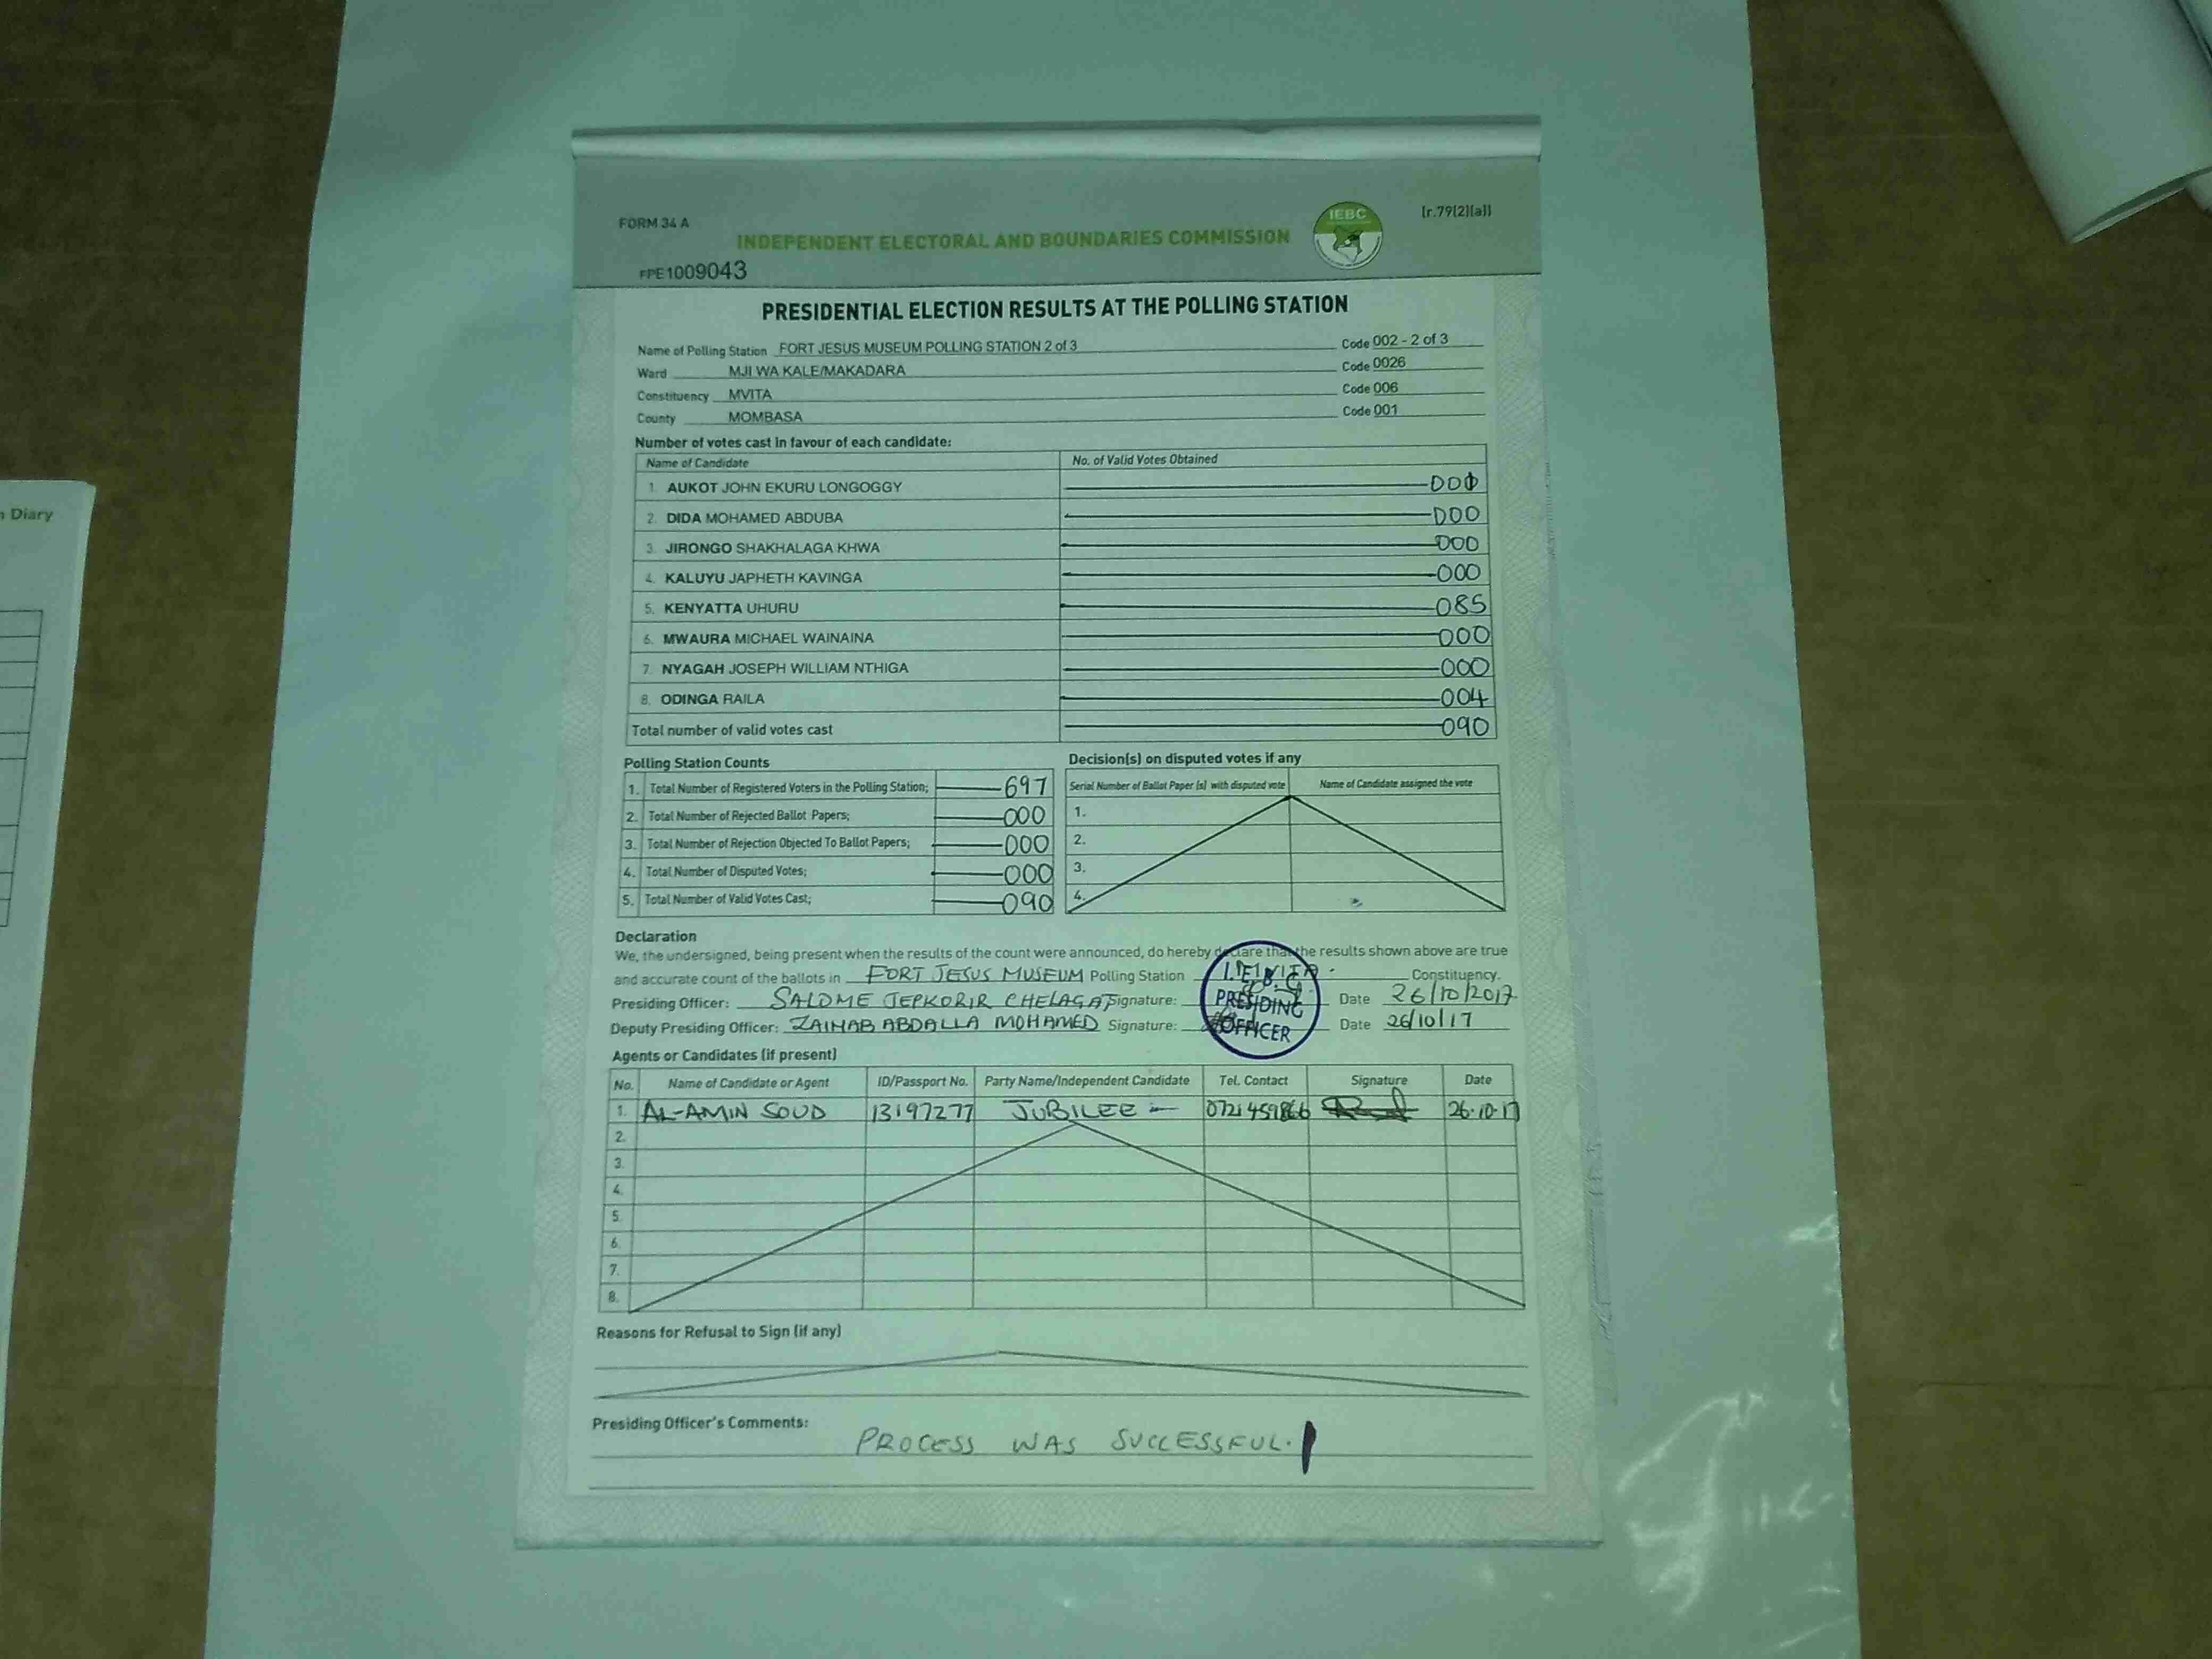 n Diary
FORM 34 A
IEBC
[r.79(2)(a)]
INDEPENDENT ELECTORAL AND BOUNDARIES COMMISSION
FPE1009043
PRESIDENTIAL ELECTION RESULTS AT THE POLLING STATION
Name of Polling Station FORT JESUS MUSEUM POLLING STATION 2 of 3 Code 002 - 2 of 3
Ward MJI WA KALE/MAKADARA Code 0026
Constituency MVITA Code 006
County MOMBASA Code 001
Number of votes cast in favour of each candidate:
Name of Candidate No. of Valid Votes Obtained
1. AUKOT JOHN EKURU LONGOGGY 000
2. DIDA MOHAMED ABDUBA 000
3. JIRONGO SHAKHALAGA KHWA 000
4. KALUYU JAPHETH KAVINGA 000
5. KENYATTA UHURU 085
6. MWAURA MICHAEL WAINAINA 000
7. NYAGAH JOSEPH WILLIAM NTHIGA 000
8. ODINGA RAILA 004
Total number of valid votes cast 090
Polling Station Counts
1. Total Number of Registered Voters in the Polling Station; 697
2. Total Number of Rejected Ballot Papers; 000
3. Total Number of Rejection Objected To Ballot Papers; 000
4. Total Number of Disputed Votes; 000
5. Total Number of Valid Votes Cast; 090
Decision(s) on disputed votes if any
Serial Number of Ballot Paper (s) with disputed vote Name of Candidate assigned the vote
1.
2.
3.
4.
Declaration
We, the undersigned, being present when the results of the count were announced, do hereby declare that the results shown above are true
and accurate count of the ballots in FORT JESUS MUSEUM Polling Station Constituency.
Presiding Officer: SALOME JEPKORIR CHELAGAT Signature: Date 26/10/2017
Deputy Presiding Officer: ZAINAB ABDALLA MOHAMED Signature: Date 26/10/17
I.E.B.C
PRESIDING
OFFICER
Agents or Candidates (if present)
No. Name of Candidate or Agent ID/Passport No. Party Name/Independent Candidate Tel. Contact Signature Date
1. AL-AMIN SOUD 13197277 JUBILEE 26.10.17
2.
3.
4.
5.
6.
7.
8.
Reasons for Refusal to Sign (if any)
Presiding Officer's Comments:
PROCESS WAS SUCCESSFUL.